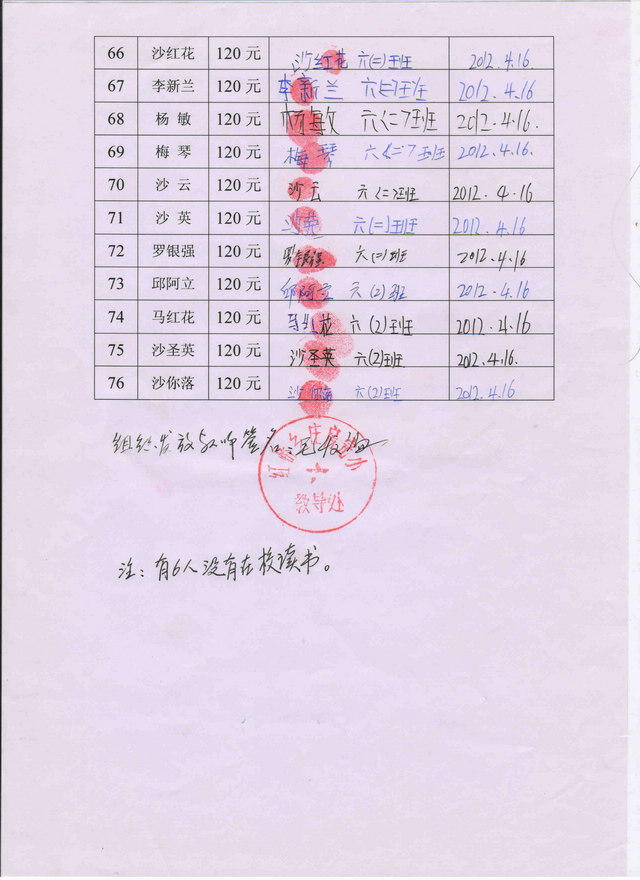 66 沙红花 120 元 沙红花 六(二)班 2012.4.16.
67 李新兰 120 元 李新兰 六(二)班 2012.4.16
68 杨 敏 120 元 杨敏 六(二)班 2012.4.16.
69 梅 琴 120 元 梅琴 六(二)班 2012.4.16.
70 沙 云 120 元 沙云 六(二)班 2012.4.16
71 沙 英 120 元 沙英 六(二)班 2012.4.16
72 罗银强 120 元 罗银强 六(二)班 2012.4.16
73 邱阿立 120 元 邱阿立 六(2)班 2012.4.16
74 马红花 120 元 马红花 六(2)班 2012.4.16
75 沙圣英 120 元 沙圣英 六(2)班 2012.4.16.
76 沙你落 120 元 沙你落 六(2)班 2012.4.16
组织发放教师签名:
教导处
注:有6人没有在校读书。